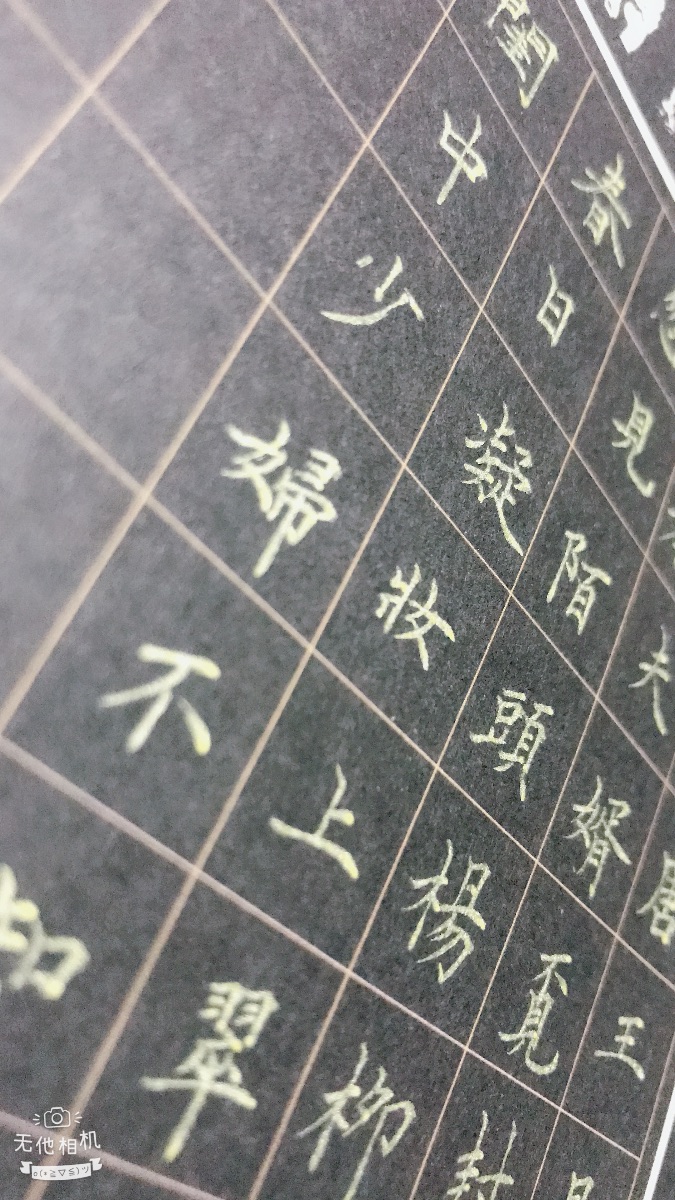 閨中少婦不知
春日凝妝上翠
見陌頭楊柳
夫婿覔封
唐王
无他相机